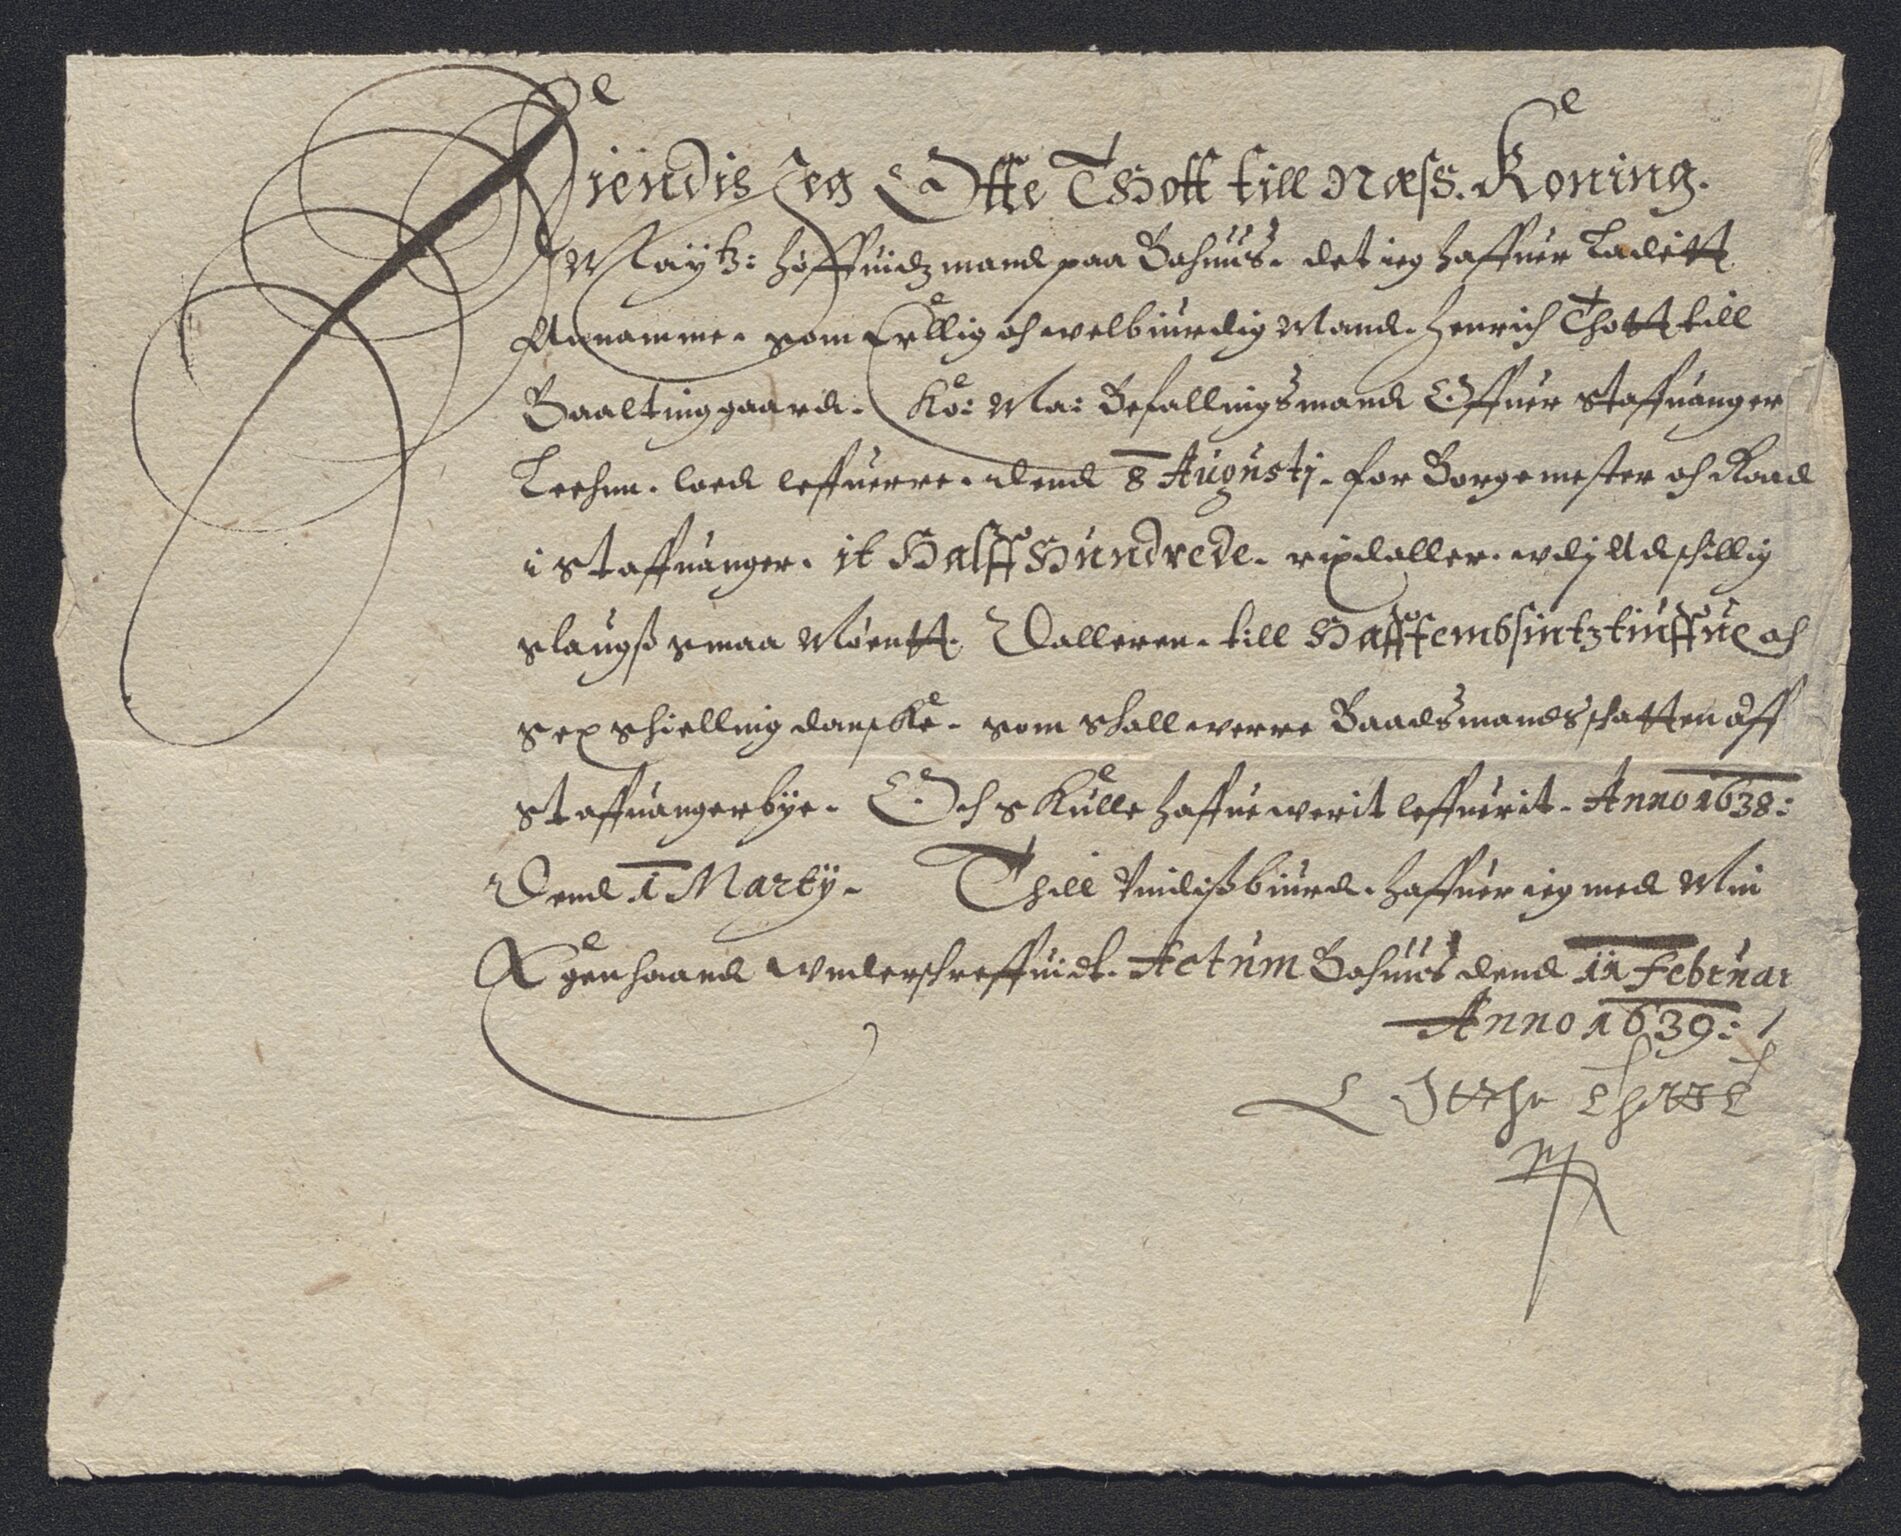 Kiendis Jeg Otte Thott till Næss. Koning.
Maÿtz: höffuidzmand paa Bahuus. det ieg haffuer Ladett
Annamme. som Erllig och welbiurdig Mand. Henrich Thott till
Baaltinggaard. Ko: Ma: Befallingsmand Offuer Staffuanger
Leehnn. loed leffuerre. dend 8 Augustj. for Borgemester och Raad
i Staffuanger. it Halff Hundrede. rixdaller. udj Adschillig
slaugß smaa Møentt. Dalleren. till Halffembsintztiuffue och
sex schielling danske. som skall werre Baadsmandsschatten aff
Staffuangerbÿe. Och skulle haffue werit leffuerit. Anno 1638:
Dend 1 Martÿ. Thill Vindißbiurd. haffuer ieg med Min
Egen haand underschreffuidt. Actum Bahuus dend 11 Februar
Anno 1639:
Otthe Thott